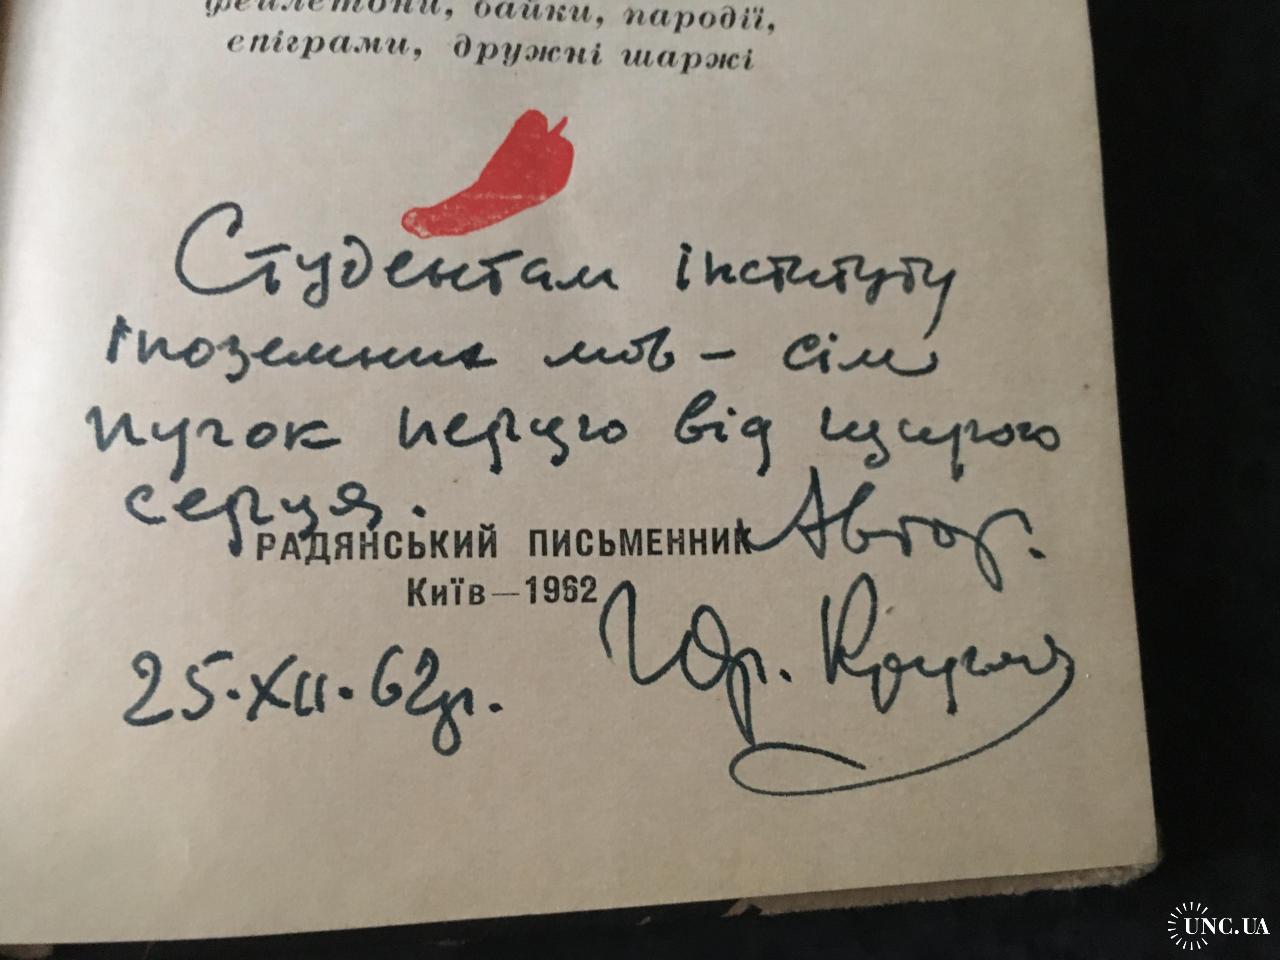 фейлетони, байки, пародії,
епіграми, дружні шаржі
Студентам інституту
іноземних мов – сім
пучок перцю від щирого
серця.
Автор.
РАДЯНСЬКИЙ ПИСЬМЕННИК
Київ — 1962
25.XII.62р.
Юр. Кругляк
UNC.UA